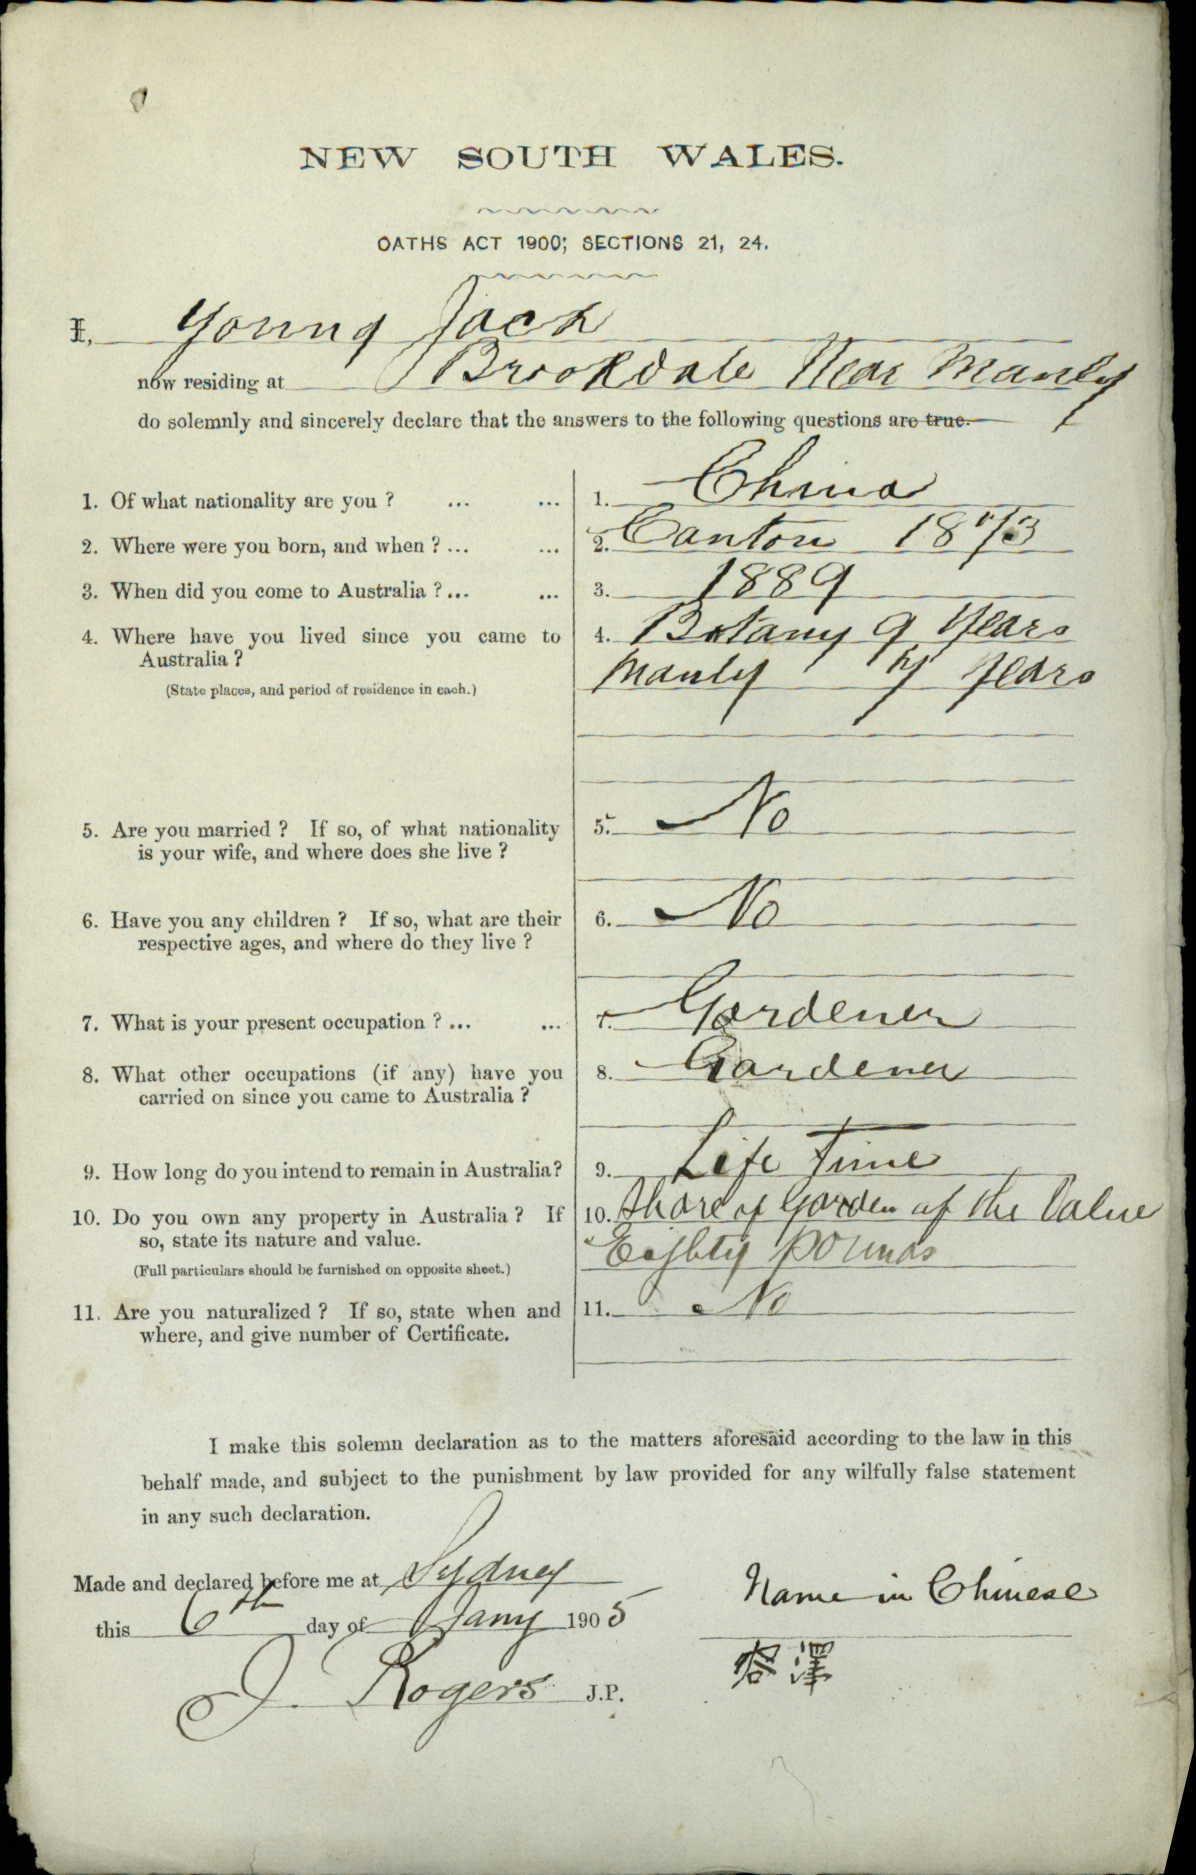 NEW SOUTH WALES.
OATHS ACT 1900; SECTIONS 21, 24.
I, Young Jack
now residing at Brookdale Near Manly
do solemnly and sincerely declare that the answers to the following questions are true.
1. Of what nationality are you ? ... ... 1. China
2. Where were you born, and when ? ... ... 2. Canton 1873
3. When did you come to Australia ? ... ... 3. 1889
4. Where have you lived since you came to 4. Botany 9 Years
Australia ? Manly 7 Years
(State places, and period of residence in each.)
5. Are you married ? If so, of what nationality 5. No
is your wife, and where does she live ?
6. Have you any children ? If so, what are their 6. No
respective ages, and where do they live ?
7. What is your present occupation ? ... ... 7. Gardener
8. What other occupations (if any) have you 8. Gardener
carried on since you came to Australia ?
9. How long do you intend to remain in Australia? 9. Life Time
10. Do you own any property in Australia ? If 10. Share of Garden of the Value
so, state its nature and value. Eighty pounds
(Full particulars should be furnished on opposite sheet.)
11. Are you naturalized ? If so, state when and 11. No
where, and give number of Certificate.
I make this solemn declaration as to the matters aforesaid according to the law in this
behalf made, and subject to the punishment by law provided for any wilfully false statement
in any such declaration.
Made and declared before me at Sydney
Name in Chinese
this 6th day of Jany 1905
澤
J. Rogers J.P.